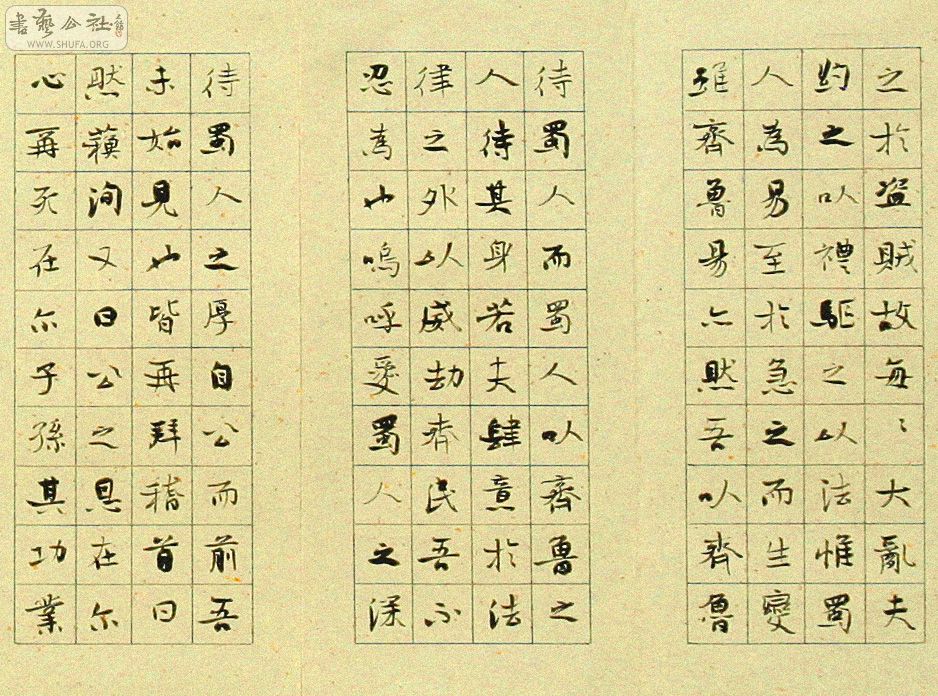 書藝公社
WWW.SHUFA.ORG
之於盜賊故每〻大亂夫
約之以禮驅之以法惟蜀
人為易至於急之而生變
雖齊魯易亦然吾以齊魯
待蜀人而蜀人以齊魯之
人待其身若夫肆意於法
律之外以威劫齊民吾不
忍為也嗚呼愛蜀人之深
待蜀人之厚自公而前吾
未始見也皆再拜稽首曰
然蘇洵又曰公之恩在尔
心再死在尔子孫其功業